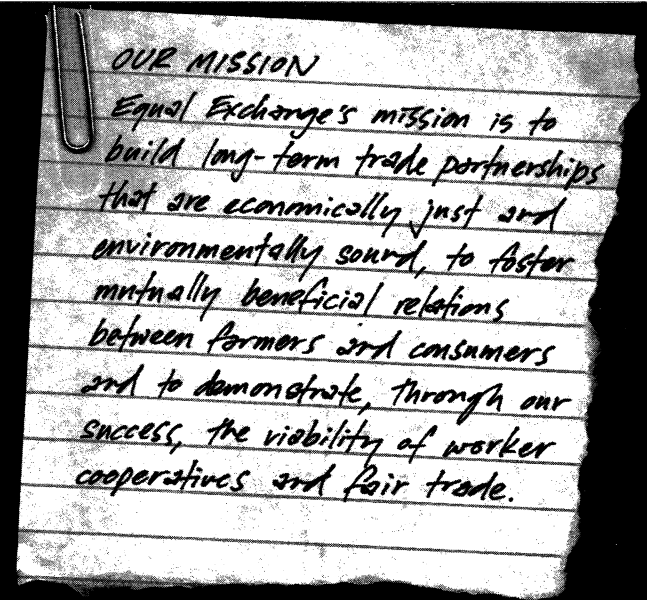 OUR MISSION
Equal Exchange's mission is to
build long-term trade partnerships
that are economically just and
environmentally sound, to foster
mutually beneficial relations
between farmers and consumers
and to demonstrate, through our
success, the viability of worker
cooperatives and fair trade.